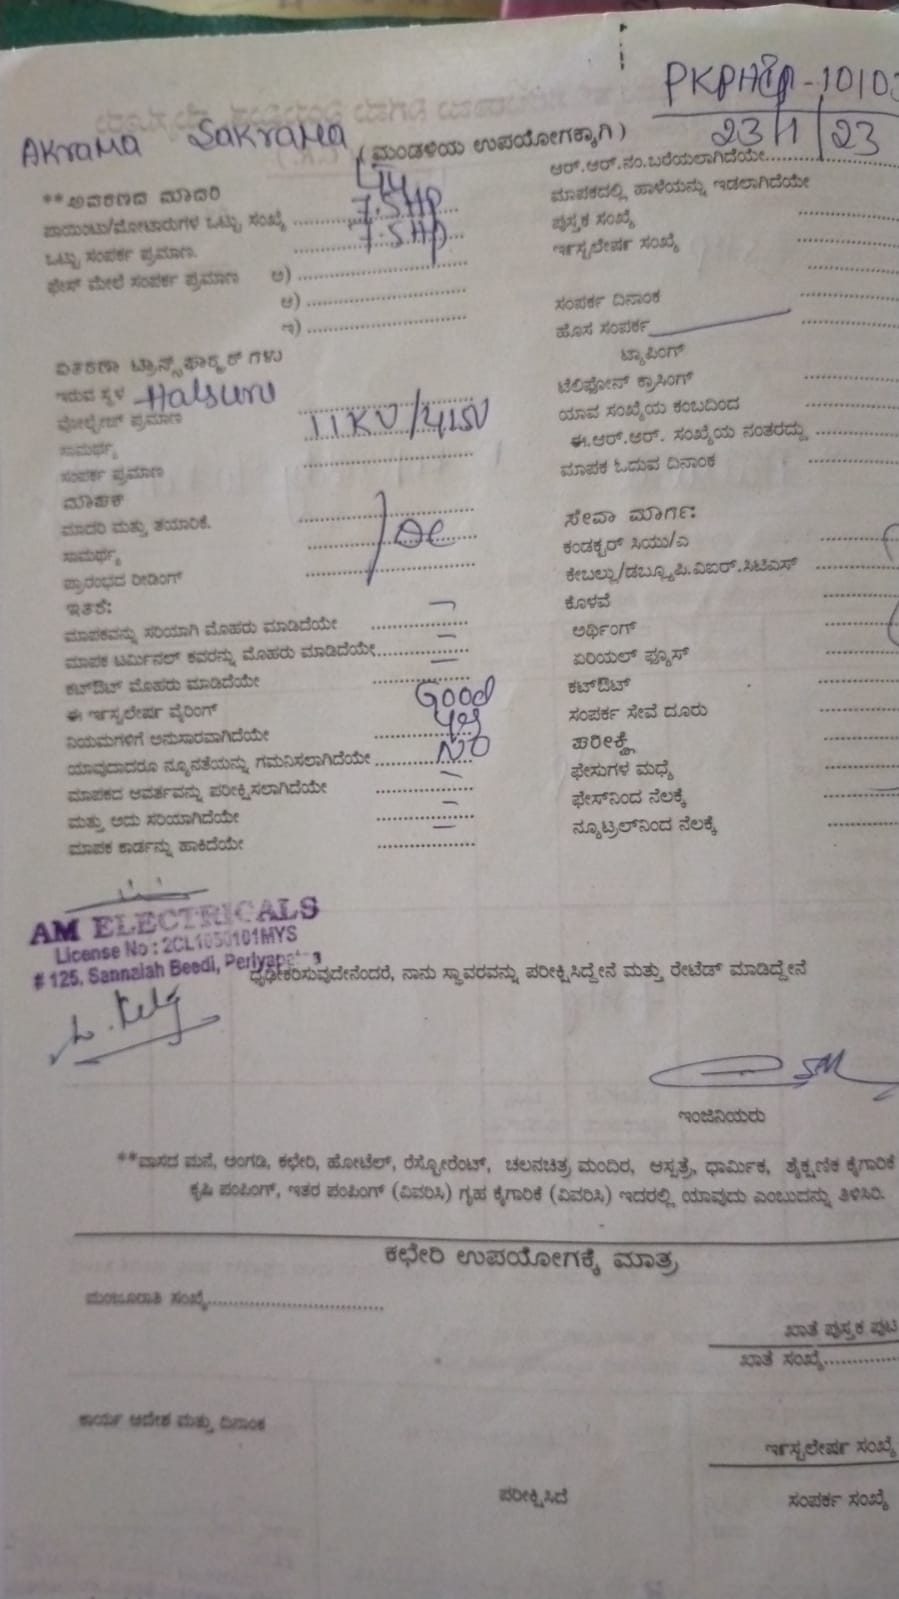 PKPHIP-10103
23/1/23
AKrama SaKrama
(ಮಂಡಳಿಯ ಉಪಯೋಗಕ್ಕಾಗಿ)
**ಅವರಣದ ಮಾದರಿ
ಪಾಯಿಂಟು/ಮೋಟಾರುಗಳ ಒಟ್ಟು ಸಂಖ್ಯೆ 7.5HP
ಒಟ್ಟು ಸಂಪರ್ಕ ಪ್ರಮಾಣ. 7.5HP
ಫೇಸ್ ಮೇಲೆ ಸಂಪರ್ಕ ಪ್ರಮಾಣ ಅ)
ಆ)
ಇ)
ವಿತರಣಾ ಟ್ರಾನ್ಸ್‌ಫಾರ್ಮರ್ ಗಳು
ಇರುವ ಸ್ಥಳ Halsuru
ವೋಲ್ಟೇಜ್ ಪ್ರಮಾಣ 11KV/415V
ಸಾಮರ್ಥ್ಯ
ಸಂಪರ್ಕ ಪ್ರಮಾಣ
ಮಾಪಕ
ಮಾದರಿ ಮತ್ತು ತಯಾರಿಕೆ.
ಸಾಮರ್ಥ್ಯ DC
ಪ್ರಾರಂಭದ ರೀಡಿಂಗ್
ಇತರೆ:
ಮಾಪಕವನ್ನು ಸರಿಯಾಗಿ ಮೊಹರು ಮಾಡಿದೆಯೇ
ಮಾಪಕ ಟರ್ಮಿನಲ್ ಕವರನ್ನು ಮೊಹರು ಮಾಡಿದೆಯೇ
ಕಟ್‌ಔಟ್ ಮೊಹರು ಮಾಡಿದೆಯೇ
ಈ ಇನ್‌ಸ್ಟಲೇಷನ್ ವೈರಿಂಗ್ Good
ನಿಯಮಗಳಿಗೆ ಅನುಸಾರವಾಗಿದೆಯೇ yes
ಯಾವುದಾದರೂ ನ್ಯೂನತೆಯನ್ನು ಗಮನಿಸಲಾಗಿದೆಯೇ NO
ಮಾಪಕದ ಆವರ್ತವನ್ನು ಪರೀಕ್ಷಿಸಲಾಗಿದೆಯೇ
ಮತ್ತು ಅದು ಸರಿಯಾಗಿದೆಯೇ
ಮಾಪಕ ಕಾರ್ಡನ್ನು ಹಾಕಿದೆಯೇ
ಆರ್.ಆರ್.ನಂ.ಬರೆಯಲಾಗಿದೆಯೇ
ಮಾಪಕದಲ್ಲಿ ಹಾಳೆಯನ್ನು ಇಡಲಾಗಿದೆಯೇ
ಪುಸ್ತಕ ಸಂಖ್ಯೆ
ಇನ್‌ಸ್ಟಲೇಷನ್ ಸಂಖ್ಯೆ
ಸಂಪರ್ಕ ದಿನಾಂಕ
ಹೊಸ ಸಂಪರ್ಕ
ಟ್ಯಾಪಿಂಗ್
ಟೆಲಿಫೋನ್ ಕ್ರಾಸಿಂಗ್
ಯಾವ ಸಂಖ್ಯೆಯ ಕಂಬದಿಂದ
ಈ.ಆರ್.ಆರ್. ಸಂಖ್ಯೆಯ ನಂತರದ್ದು
ಮಾಪಕ ಓದುವ ದಿನಾಂಕ
ಸೇವಾ ಮಾರ್ಗ:
ಕಂಡಕ್ಟರ್ ಸಿಯು/ಎ
ಕೇಬಲ್ಲು/ಡಬ್ಲ್ಯೂಪಿ.ವಿಐರ್.ಸಿಟಿಎಸ್
ಕೊಳವೆ
ಅರ್ಥಿಂಗ್
ಏರಿಯಲ್ ಫ್ಯೂಸ್
ಕಟ್‌ಔಟ್
ಸಂಪರ್ಕ ಸೇವೆ ದೂರು
ಪರೀಕ್ಷೆ
ಫೇಸುಗಳ ಮಧ್ಯೆ
ಫೇಸ್‌ನಿಂದ ನೆಲಕ್ಕೆ
ನ್ಯೂಟ್ರಲ್‌ನಿಂದ ನೆಲಕ್ಕೆ
AM ELECTRICALS
License No : 2CL1050101MYS
# 125, Sannaiah Beedi, Periyapatna
ಧೃಢೀಕರಿಸುವುದೇನೆಂದರೆ, ನಾನು ಸ್ಥಾವರವನ್ನು ಪರೀಕ್ಷಿಸಿದ್ದೇನೆ ಮತ್ತು ರೇಟೆಡ್ ಮಾಡಿದ್ದೇನೆ
ಇಂಜಿನಿಯರು
**ವಾಸದ ಮನೆ, ಅಂಗಡಿ, ಕಛೇರಿ, ಹೋಟೆಲ್, ರೆಸ್ಟೋರೆಂಟ್, ಚಲನಚಿತ್ರ ಮಂದಿರ, ಆಸ್ಪತ್ರೆ, ಧಾರ್ಮಿಕ, ಶೈಕ್ಷಣಿಕ ಕೈಗಾರಿಕೆ
ಕೃಷಿ ಪಂಪಿಂಗ್, ಇತರ ಪಂಪಿಂಗ್ (ವಿವರಿಸಿ) ಗೃಹ ಕೈಗಾರಿಕೆ (ವಿವರಿಸಿ) ಇದರಲ್ಲಿ ಯಾವುದು ಎಂಬುದನ್ನು ತಿಳಿಸಿರಿ.
ಕಛೇರಿ ಉಪಯೋಗಕ್ಕೆ ಮಾತ್ರ
ಮಂಜೂರಾತಿ ಸಂಖ್ಯೆ
ಖಾತೆ ಪುಸ್ತಕ ಪುಟ
ಖಾತೆ ಸಂಖ್ಯೆ
ಕಾರ್ಯ ಆದೇಶ ಮತ್ತು ದಿನಾಂಕ
ಇನ್‌ಸ್ಟಲೇಷನ್ ಸಂಖ್ಯೆ
ಪರೀಕ್ಷಿಸಿದೆ
ಸಂಪರ್ಕ ಸಂಖ್ಯೆ